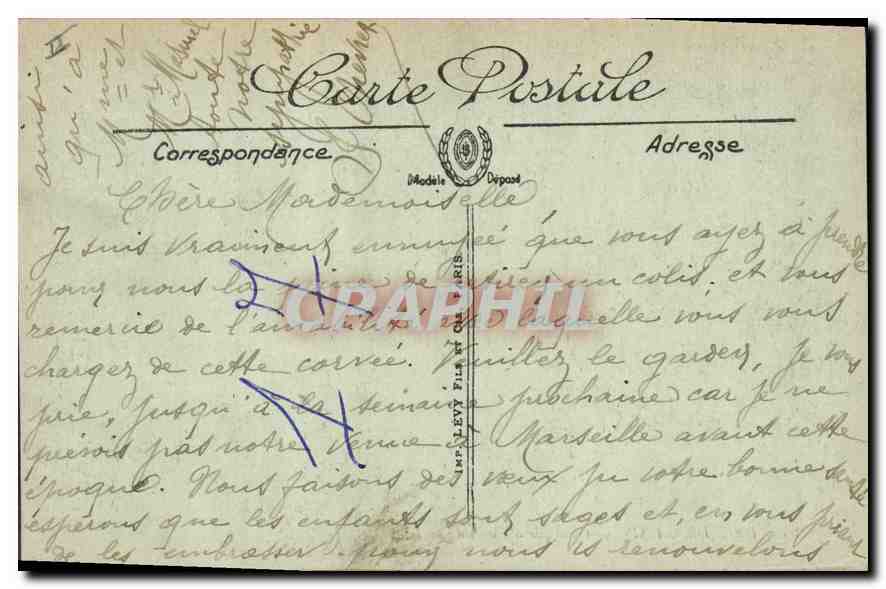 Carte Postale
Correspondance
Adresse
Modèle Déposé
IMP. LEVY FILS ET CIE PARIS.
CPARHIL
Chère Mademoiselle
Je suis vraiment ennuyée que vous ayez à prendre
pour nous la peine de retirer un colis et vous
remercie de l'amabilité avec laquelle vous vous
chargez de cette corvée. Veuillez le garder, je vous
prie, jusqu'à la semaine prochaine car je ne
prévois pas notre venue à Marseille avant cette
époque. Nous faisons des vœux pr votre bonne santé
espérons que les enfants sont sages et, en vous priant
de les embrasser pour nous renouvelons
ainsi
qu'à
Mme et
Mr
toute
notre
sympathie